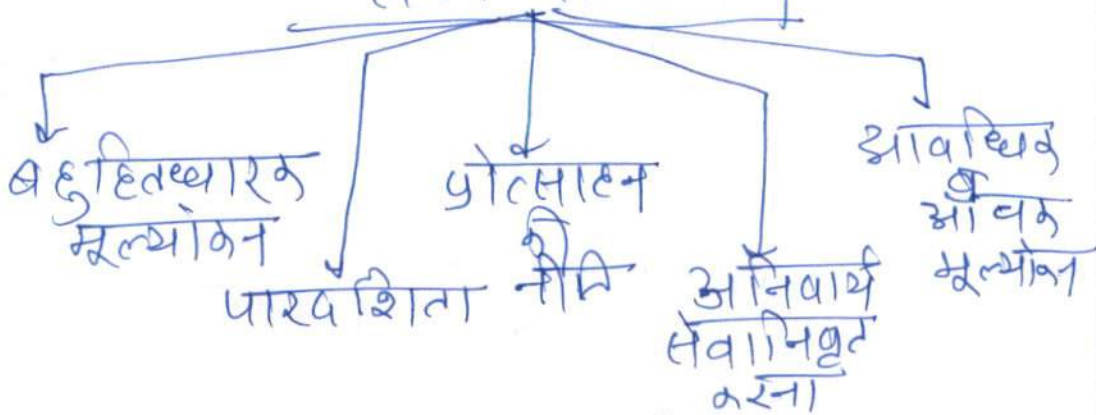 बहुहितधारक
मूल्यांकन
पारदर्शिता
प्रोत्साहन
की
नीति
अनिवार्य
सेवानिवृत
करना
आवधिक
व
मूल्यांकन